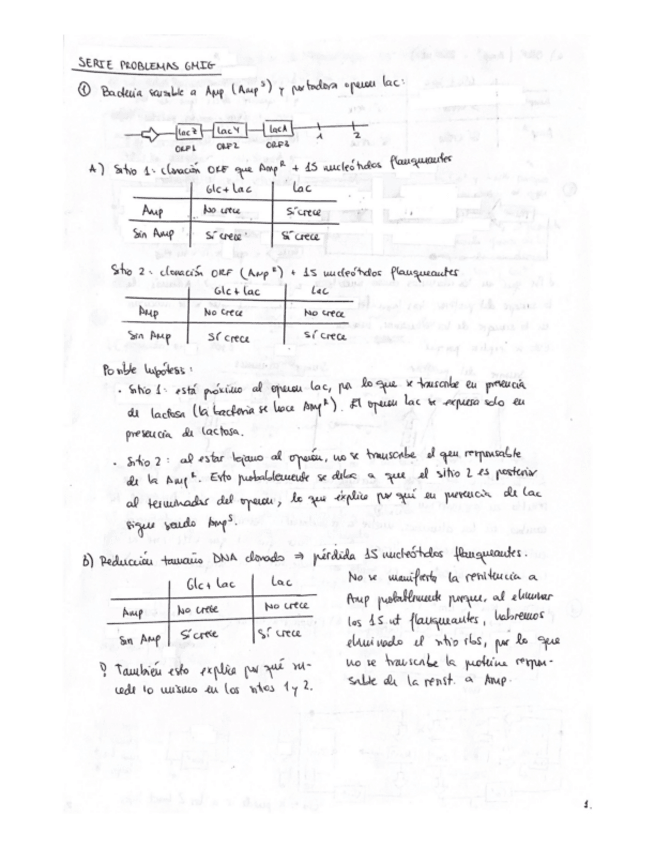 SERIE PROBLEMAS GMIG
① Bacteria sensible a Amp (Amp^S) y portadora operon lac:
LacZ LacY LacA 1 2
ORF1 ORF2 ORF3
A) Sitio 1: clonación ORF que Amp^R + 15 nucleótidos flanqueantes
Glc + Lac Lac
Amp No crece Sí crece
Sin Amp Sí crece Sí crece
Sitio 2: clonación ORF (Amp^R) + 15 nucleótidos flanqueantes
Glc + Lac Lac
Amp No crece No crece
Sin Amp Sí crece Sí crece
Posible hipótesis:
· Sitio 1: está próximo al operon lac, por lo que se transcribe en presencia
de lactosa (la bacteria se hace Amp^R). El operon lac se expresa solo en
presencia de lactosa.
· Sitio 2: al estar lejano al operón, no se transcribe el gen responsable
de la Amp^R. Esto probablemente se deba a que el sitio 2 es posterior
al terminador del operon, lo que explica por qué en presencia de lac
sigue siendo Amp^S.
b) Reducción tamaño DNA clonado ⇒ pérdida 15 nucleótidos flanqueantes.
Glc + Lac Lac
Amp No crece No crece
Sin Amp Sí crece Sí crece
No se manifiesta la resistencia a
Amp probablemente porque, al eliminar
los 15 nt flanqueantes, habremos
eliminado el sitio rbs, por lo que
no se transcribe la proteína respon-
sable de la resist. a Amp.
También esto explica por qué su-
cede lo mismo en los sitios 1 y 2.
1.